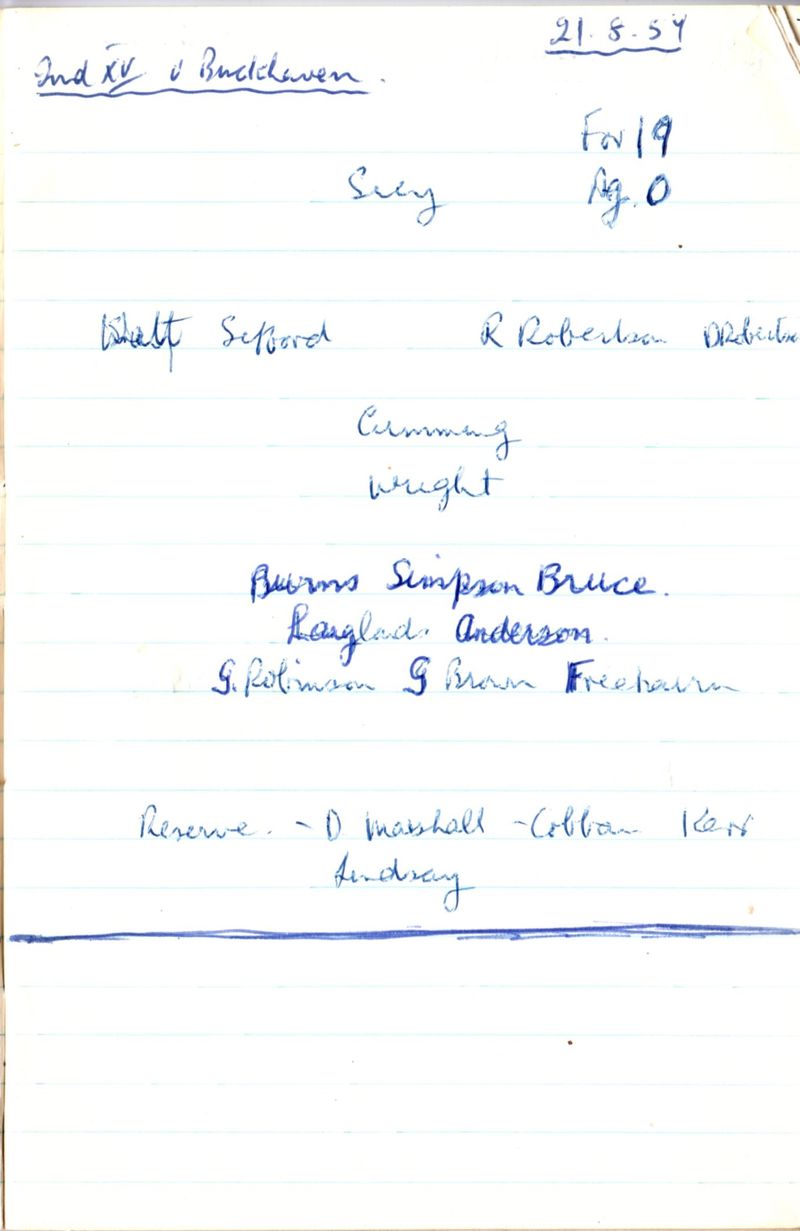 21.8.54
2nd XV v Buckhaven.
For 19
Ag. 0
Sefford R Robertson D Robertson
Cumming
Wright
Burns Simpson Bruce.
Anderson.
G. Robinson G Brown Freebairn
Reserve. - D Marshall - Cobban Kerr
Lindsay